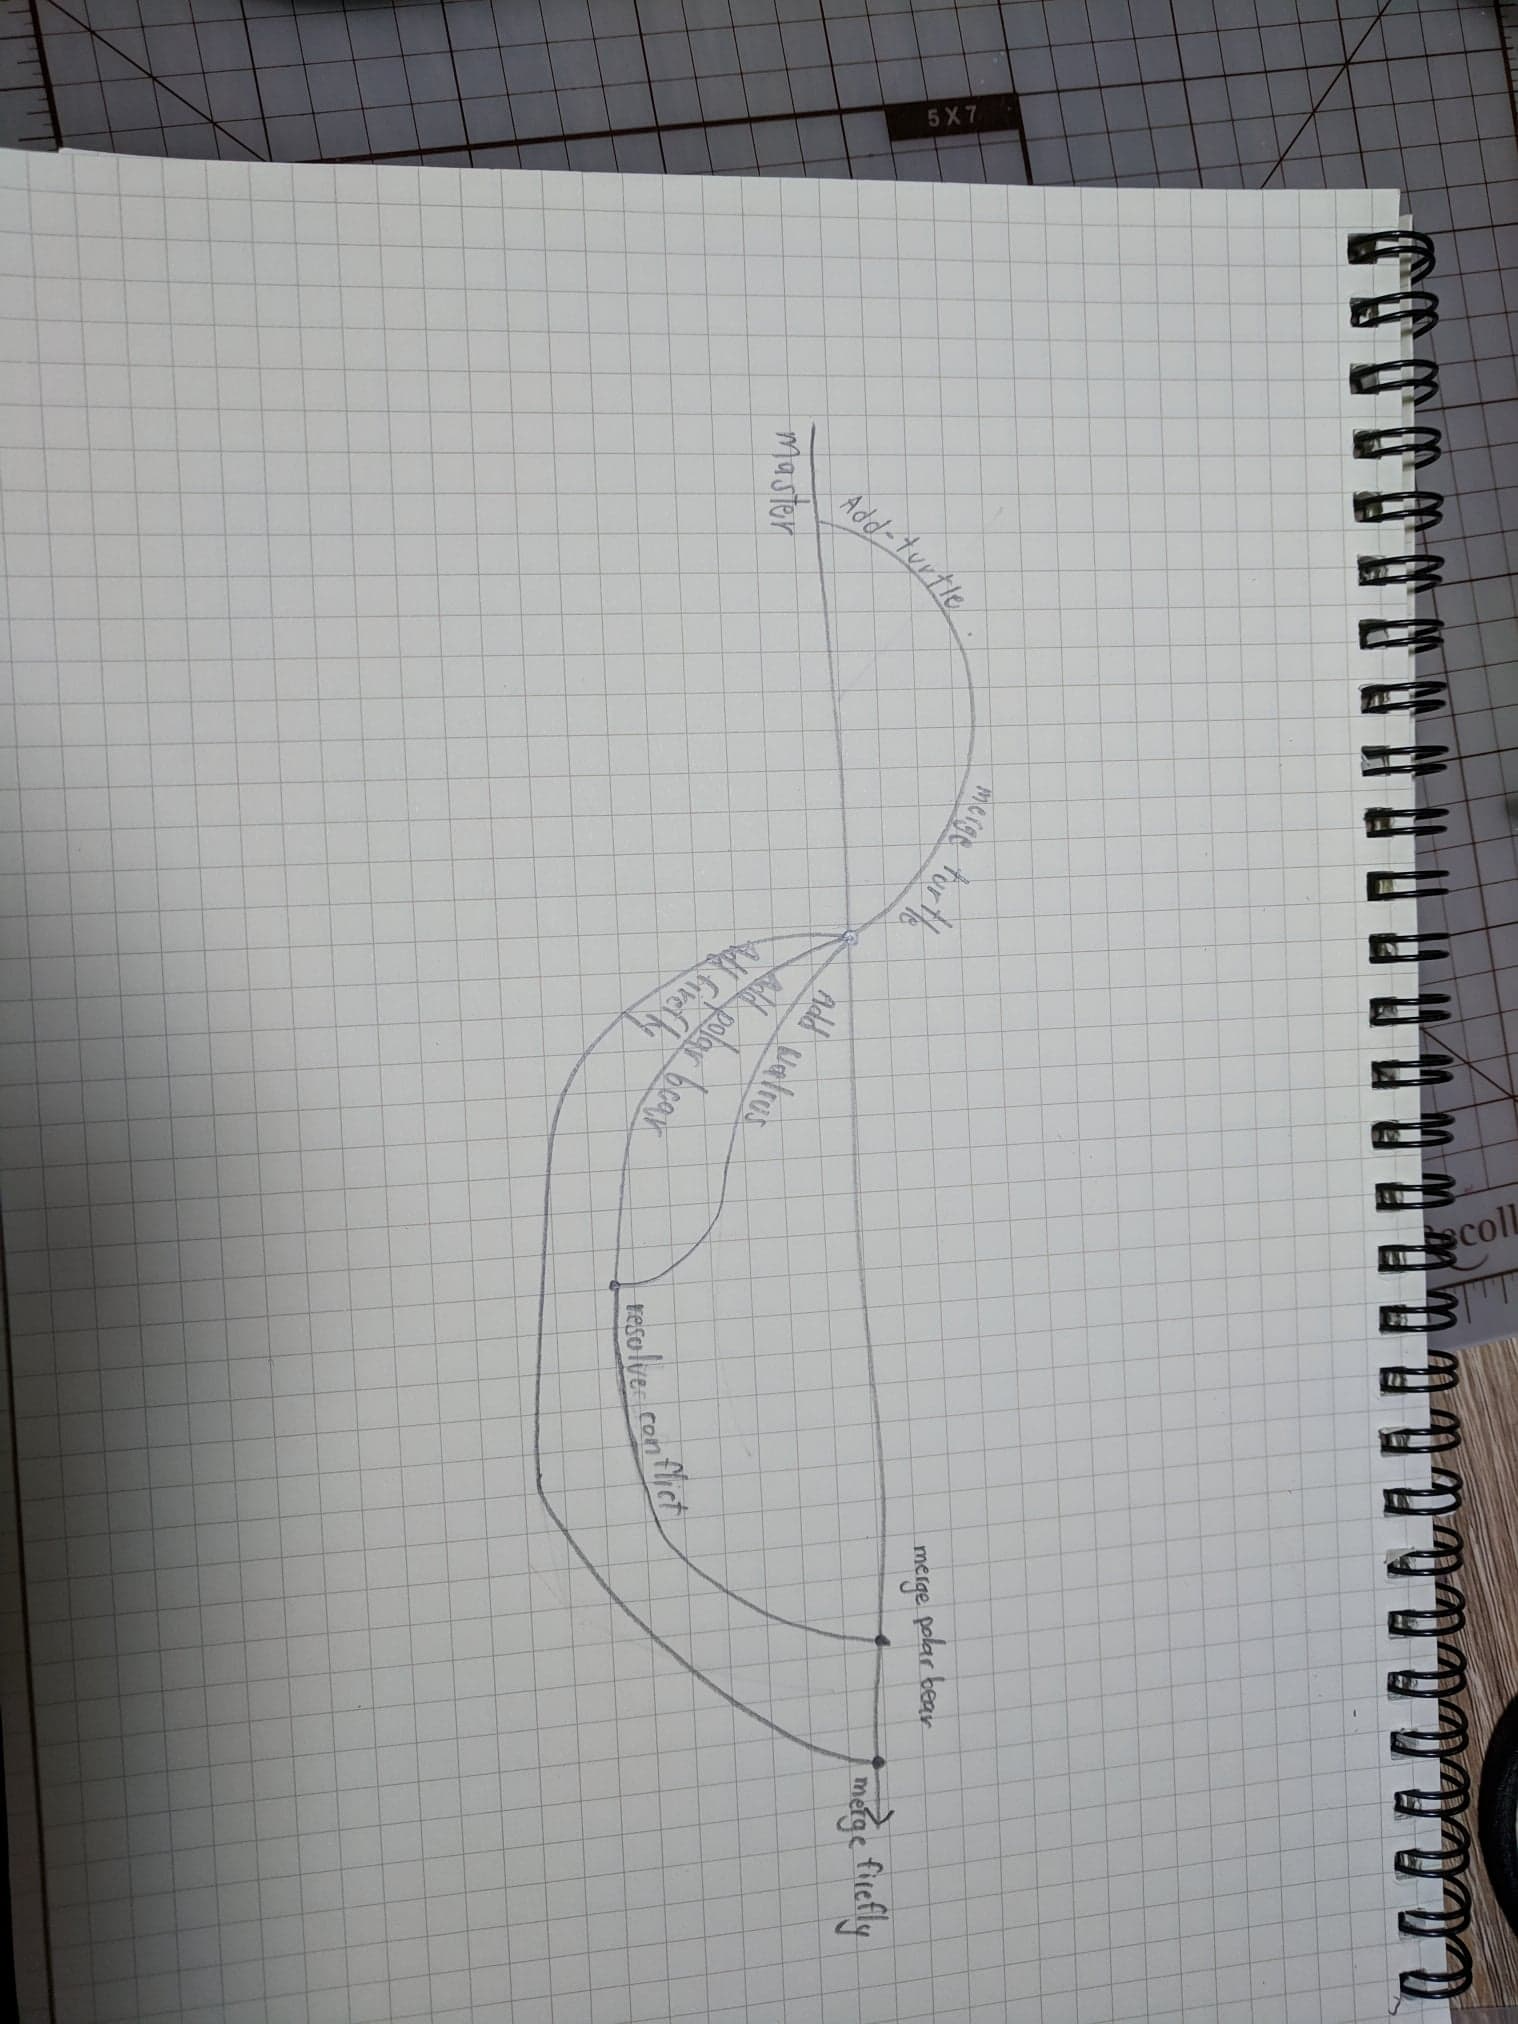 5 X 7
Master
Add-turtle
merge turtle
Add walrus
Add polar bear
Add firefly
resolve conflict
merge polar bear
merge firefly